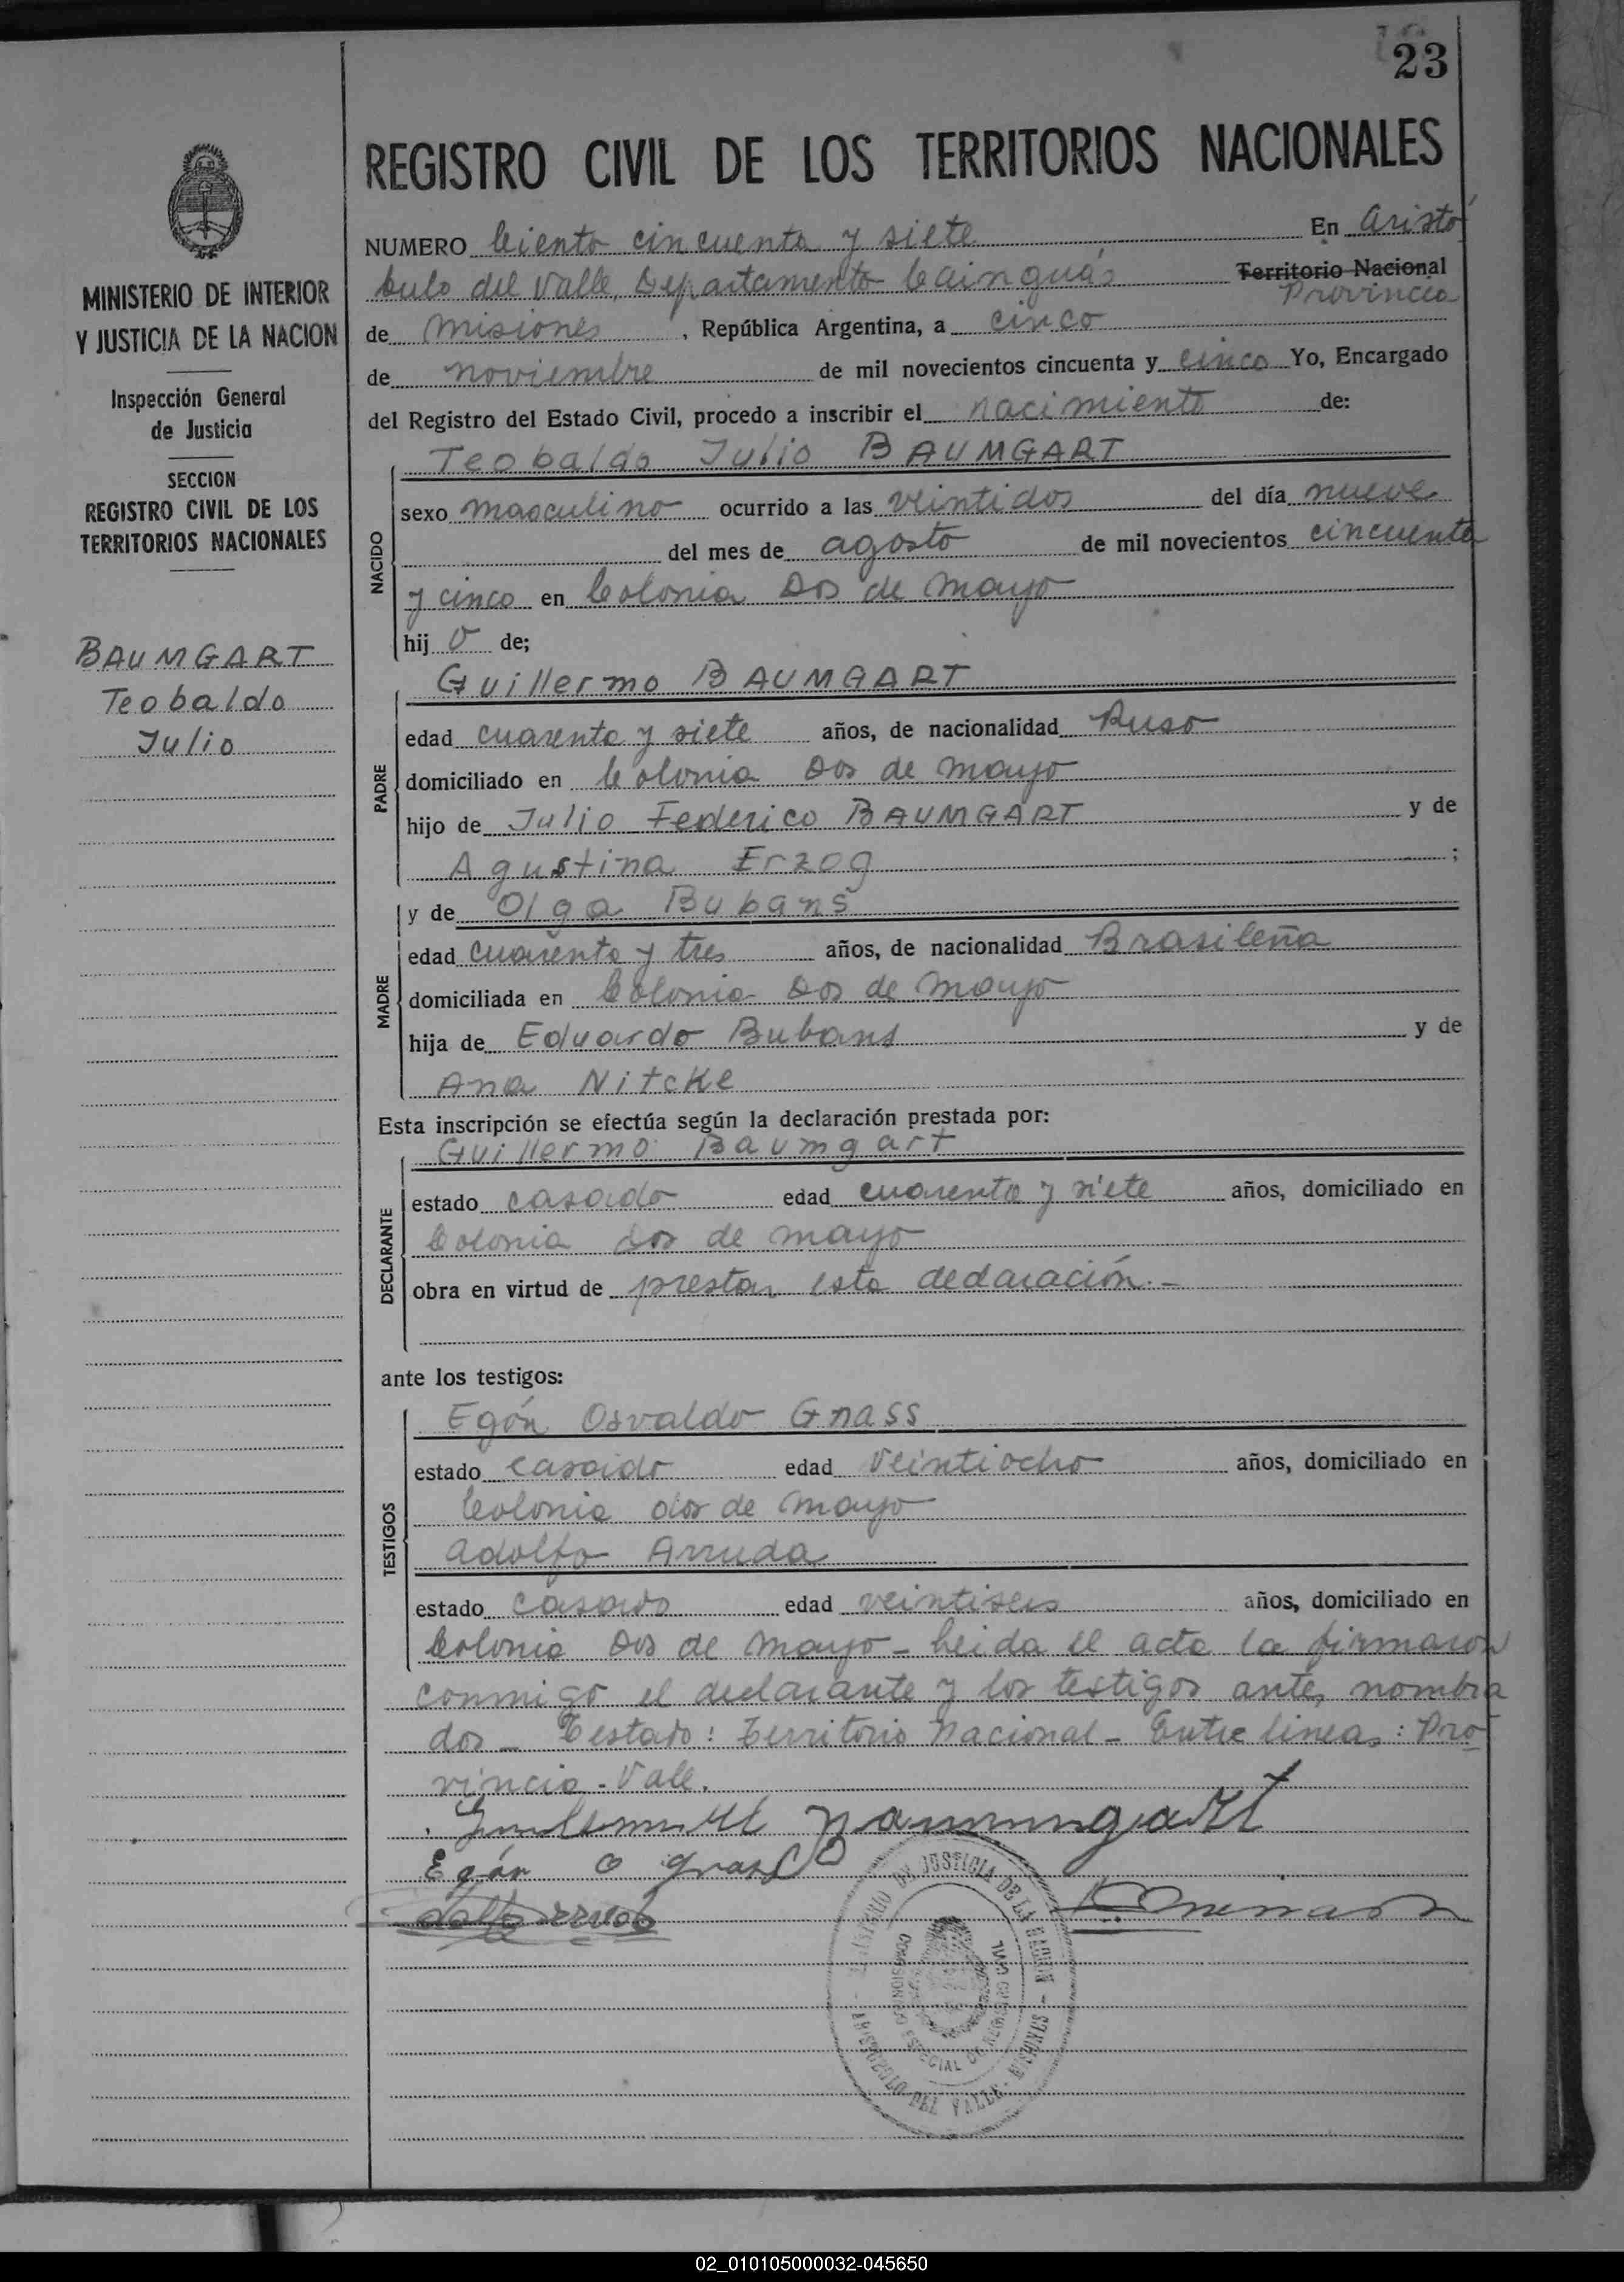 23
REGISTRO CIVIL DE LOS TERRITORIOS NACIONALES
MINISTERIO DE INTERIOR
Y JUSTICIA DE LA NACION
Inspección General
de Justicia
SECCION
REGISTRO CIVIL DE LOS
TERRITORIOS NACIONALES
BAUMGART
Teobaldo
Julio
NUMERO Ciento cincuenta y siete En Aristó
bulo del Valle, Departamento Cainguás Territorio Nacional
Provincia
de Misiones, República Argentina, a cinco
de noviembre de mil novecientos cincuenta y cinco Yo, Encargado
del Registro del Estado Civil, procedo a inscribir el nacimiento de:
NACIDO
Teobaldo Julio BAUMGART
sexo masculino ocurrido a las veintidos del día nueve
del mes de agosto de mil novecientos cincuenta
y cinco en Colonia Dos de Mayo
hij o de;
PADRE
Guillermo BAUMGART
edad cuarenta y siete años, de nacionalidad Ruso
domiciliado en Colonia Dos de Mayo
hijo de Julio Federico BAUMGART y de
Agustina Erzog ;
MADRE
y de Olga Bubans
edad cuarenta y tres años, de nacionalidad Brasileña
domiciliada en Colonia Dos de Mayo
hija de Eduardo Bubans y de
Ana Nitcke
Esta inscripción se efectúa según la declaración prestada por:
DECLARANTE
Guillermo Baumgart
estado casado edad cuarenta y siete años, domiciliado en
Colonia Dos de mayo
obra en virtud de prestar esta declaración.-
ante los testigos:
TESTIGOS
Egón Osvaldo Gnass
estado casado edad veintiocho años, domiciliado en
Colonia dos de Mayo
Adolfo Arruda
estado casado edad veintiseis años, domiciliado en
Colonia Dos de Mayo - Leida el acta la firmaron
conmigo el declarante y los testigos antes nombra
dos - Testado: Territorio Nacional - Entre lineas: Pro
vincia - Vale.
Egón O
MINISTERIO DE JUSTICIA DE LA NACION
ARISTOBULO DEL VALLE - MISIONES
ESPECIAL DE REGISTRO CIVIL
02_010105000032-045650